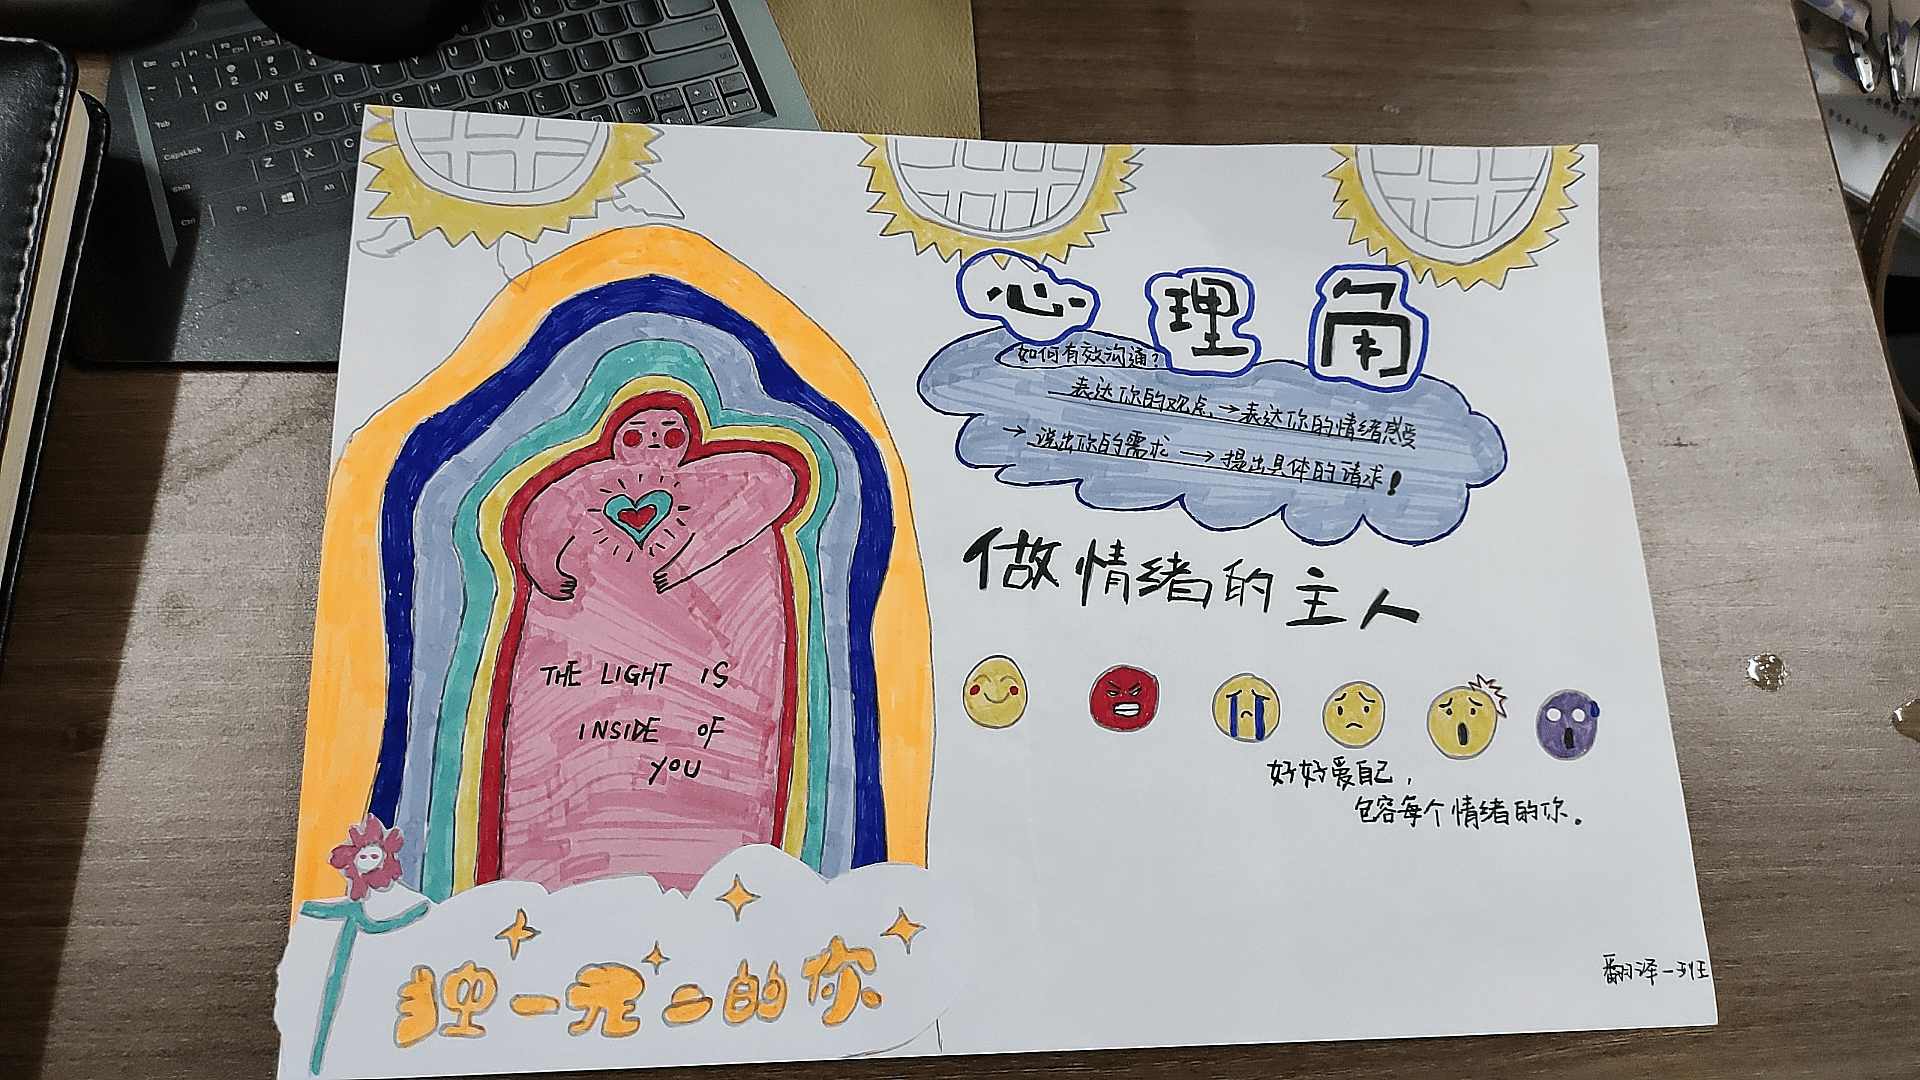 心理角
如何有效沟通？
表达你的观点→表达你的情绪感受
→说出你的需求→提出具体的请求！
做情绪的主人
好好爱自己，
包容每个情绪的你。
THE LIGHT IS
INSIDE OF
YOU
独一无二的你
翻译一班